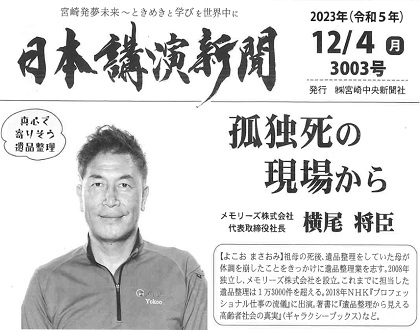 宮崎発夢未来～ときめきと学びを世界中に
日本講演新聞
2023年(令和5年)
12/4 月
3003号
発行 ㈱宮崎中央新聞社
真心で
寄りそう
遺品整理
孤独死の
現場から
メモリーズ株式会社
代表取締役社長 横尾 将臣
【よこお まさおみ】祖母の死後、遺品整理をしていた母が
体調を崩したことをきっかけに遺品整理業を志す。2008年
独立し、メモリーズ株式会社を設立。これまでに担当した
遺品整理は1万3000件を超える。2018年NHK『プロフェッ
ショナル仕事の流儀』に出演。著書に『遺品整理から見える
高齢者社会の真実』(ギャラクシーブックス)など。